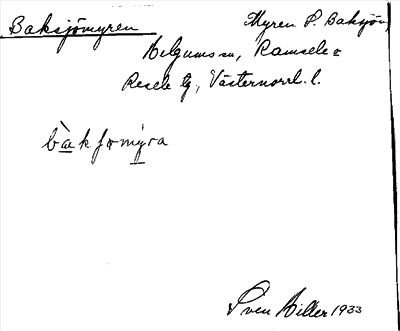 Baksjömyren Myren S. Baksjön,
Helgums sn, Ramsele o
Resele tg, Västernorrl. l.
bàkʃomýra
Sven Hiller 1933